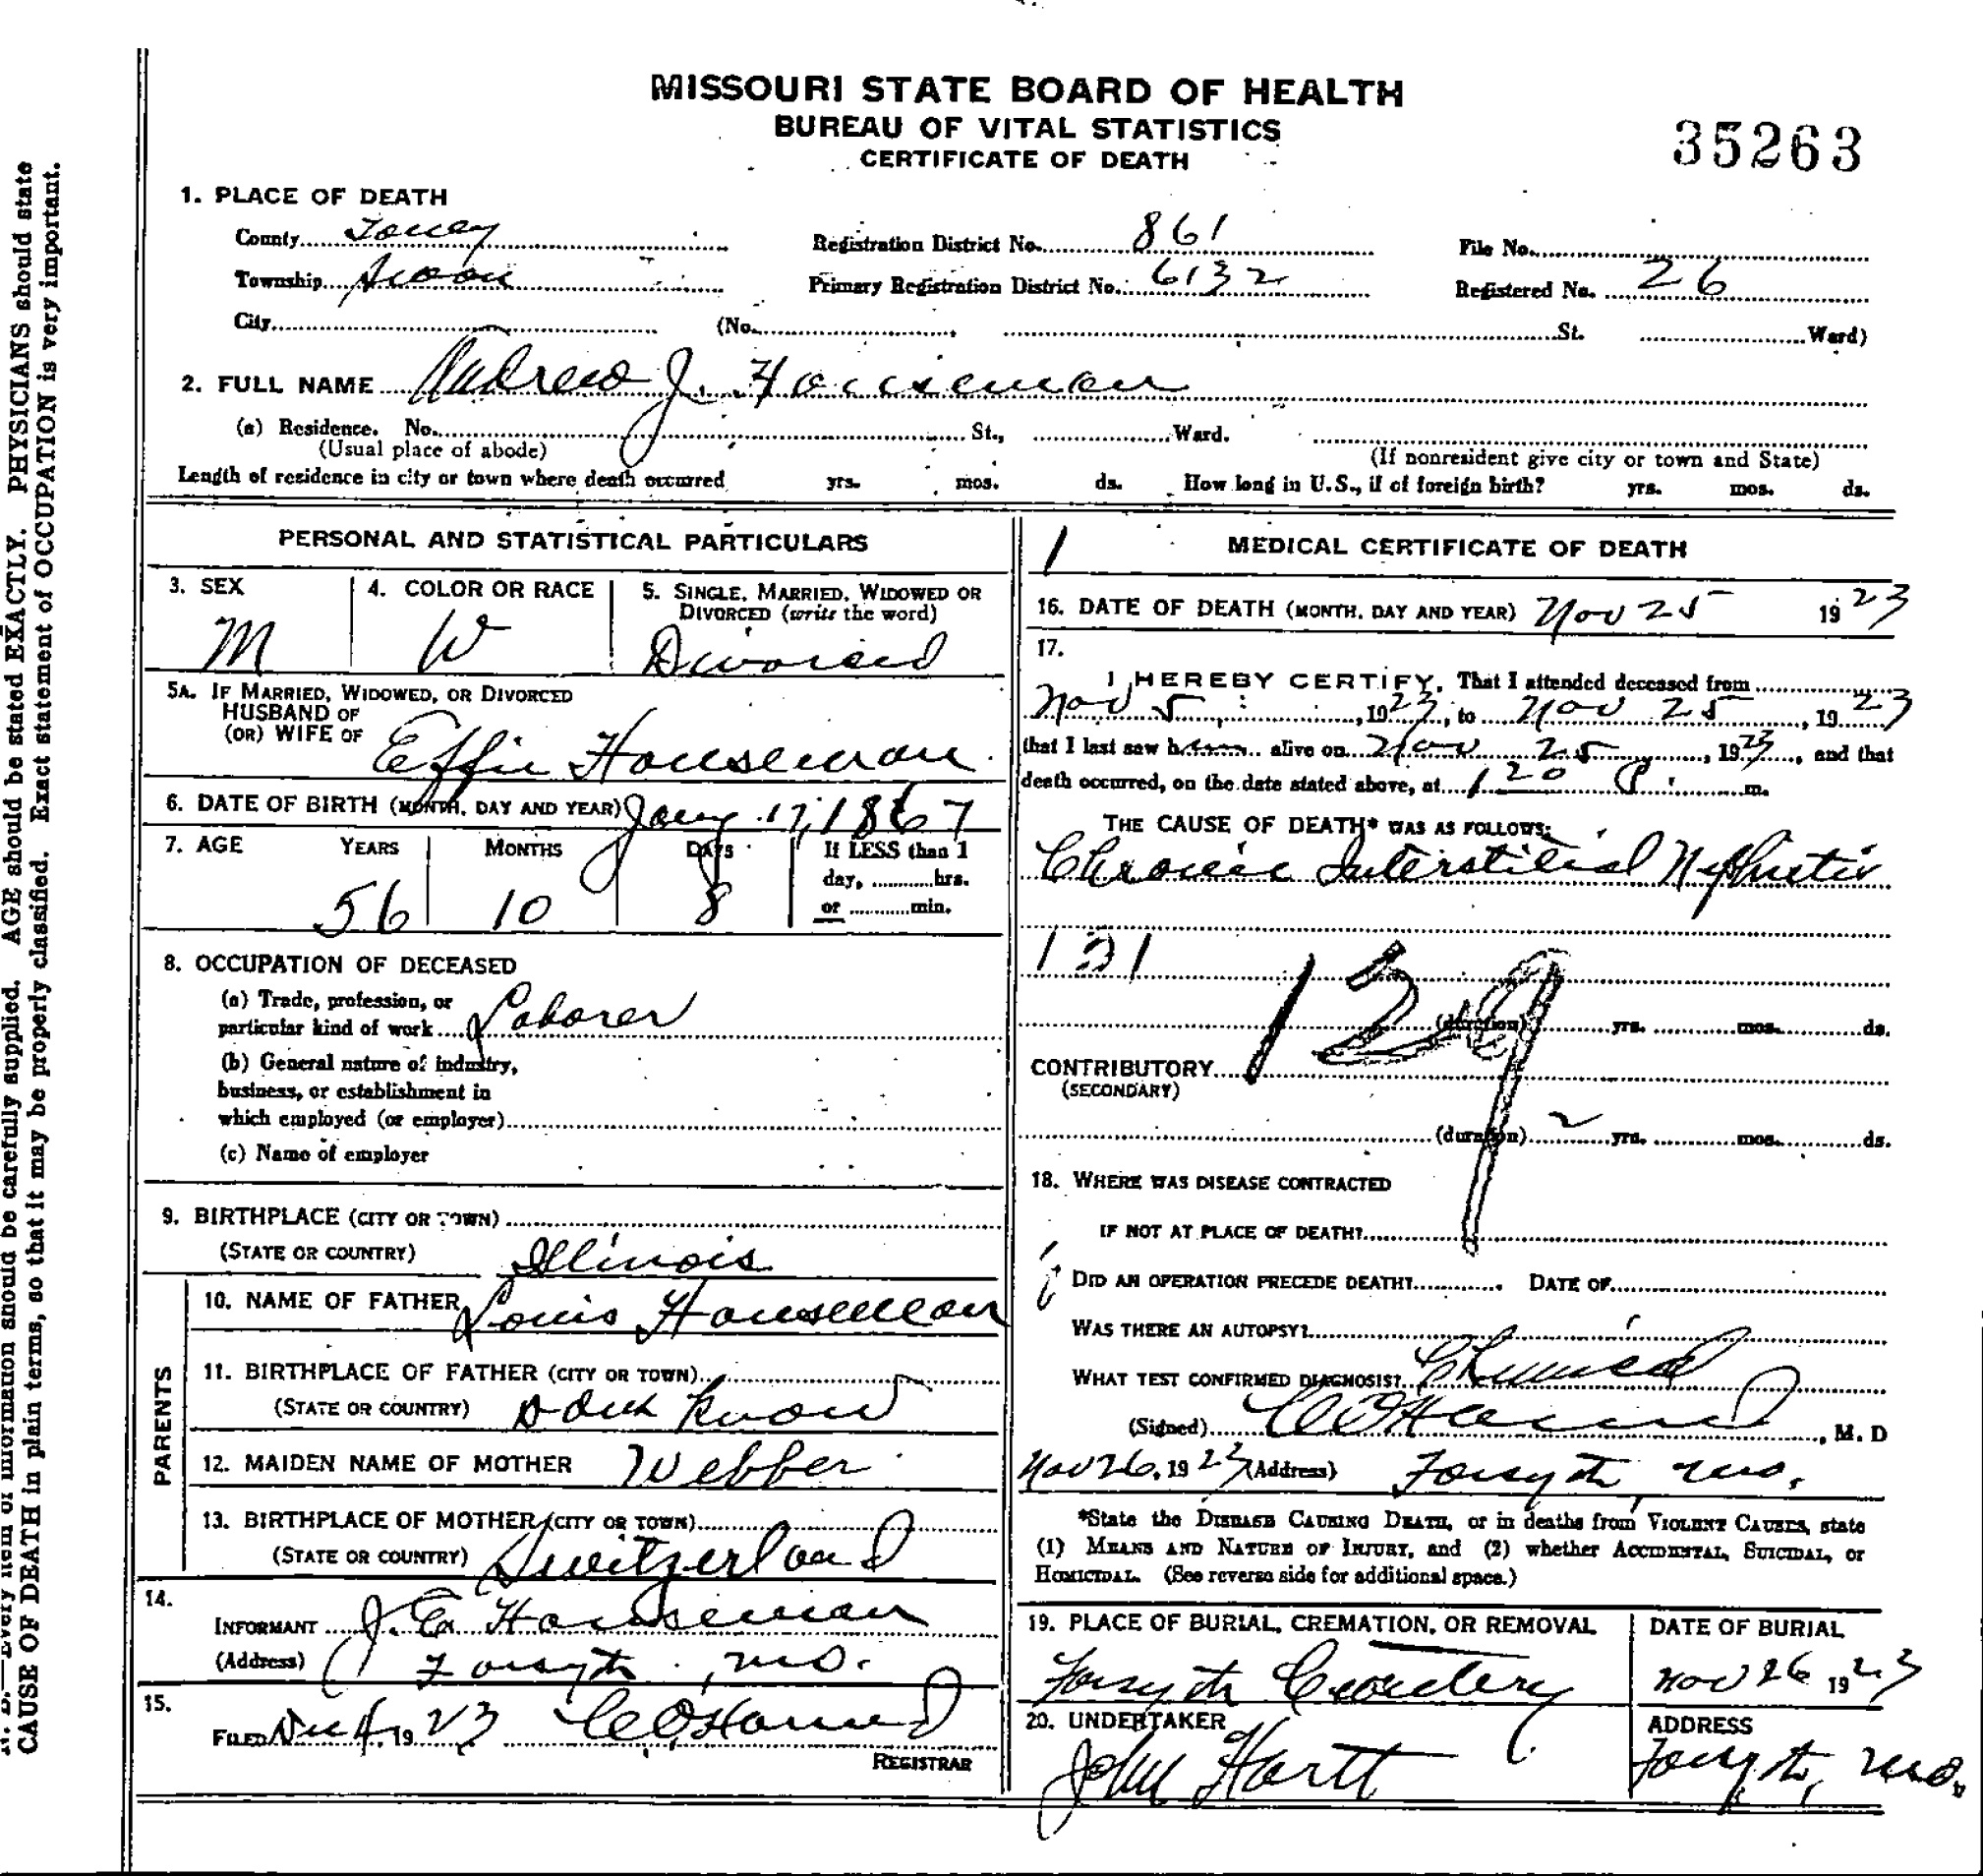 MISSOURI STATE BOARD OF HEALTH
BUREAU OF VITAL STATISTICS
CERTIFICATE OF DEATH
35263
1. PLACE OF DEATH
County Taney Registration District No. 861 File No.
Township Swan Primary Registration District No. 6132 Registered No. 26
City (No. St. Ward)
2. FULL NAME Andrew J. Houseman
(a) Residence. No. St., Ward.
(Usual place of abode) (If nonresident give city or town and State)
Length of residence in city or town where death occurred yrs. mos. ds. How long in U.S., if of foreign birth? yrs. mos. ds.
PERSONAL AND STATISTICAL PARTICULARS
3. SEX 4. COLOR OR RACE 5. SINGLE, MARRIED, WIDOWED OR
DIVORCED (write the word)
M W Divorced
5A. IF MARRIED, WIDOWED, OR DIVORCED
HUSBAND OF
(OR) WIFE OF Effie Houseman
6. DATE OF BIRTH (MONTH, DAY AND YEAR) Jany 17, 1867
7. AGE YEARS MONTHS DAYS If LESS than 1
day, hrs.
or min.
56 10 8
8. OCCUPATION OF DECEASED
(a) Trade, profession, or
particular kind of work Laborer
(b) General nature of industry,
business, or establishment in
which employed (or employer)
(c) Name of employer
9. BIRTHPLACE (CITY OR TOWN)
(STATE OR COUNTRY) Illinois
PARENTS
10. NAME OF FATHER Louis Houseman
11. BIRTHPLACE OF FATHER (CITY OR TOWN)
(STATE OR COUNTRY) Dont Know
12. MAIDEN NAME OF MOTHER Webber
13. BIRTHPLACE OF MOTHER (CITY OR TOWN)
(STATE OR COUNTRY) Switzerland
14.
INFORMANT J. E. Houseman
(Address) Forsyth, Mo.
15.
FILED Dec 4, 1923
REGISTRAR
1 MEDICAL CERTIFICATE OF DEATH
16. DATE OF DEATH (MONTH, DAY AND YEAR) Nov 25 1923
17.
I HEREBY CERTIFY, That I attended deceased from
Nov 5, 1923, to Nov 25, 1923
that I last saw him alive on Nov 25, 1923, and that
death occurred, on the date stated above, at 120 P. m.
THE CAUSE OF DEATH* WAS AS FOLLOWS:
Chronic Interstitial Nephritis
131
129
(duration) yrs. mos. ds.
CONTRIBUTORY
(SECONDARY)
(duration) 2 yrs. mos. ds.
18. WHERE WAS DISEASE CONTRACTED
IF NOT AT PLACE OF DEATH?
DID AN OPERATION PRECEDE DEATH? DATE OF
WAS THERE AN AUTOPSY?
WHAT TEST CONFIRMED DIAGNOSIS? Chemical
(Signed) , M. D
Nov 26, 1923 (Address) Forsyth, Mo.
*State the DISEASE CAUSING DEATH, or in deaths from VIOLENT CAUSES, state
(1) MEANS AND NATURE OF INJURY, and (2) whether ACCIDENTAL, SUICIDAL, or
HOMICIDAL. (See reverse side for additional space.)
19. PLACE OF BURIAL, CREMATION, OR REMOVAL DATE OF BURIAL
Forsyth Cemetery Nov 26 1923
20. UNDERTAKER ADDRESS
John Hartt Forsyth, Mo.
N. B.—Every item of information should be carefully supplied. AGE should be stated EXACTLY. PHYSICIANS should state
CAUSE OF DEATH in plain terms, so that it may be properly classified. Exact statement of OCCUPATION is very important.